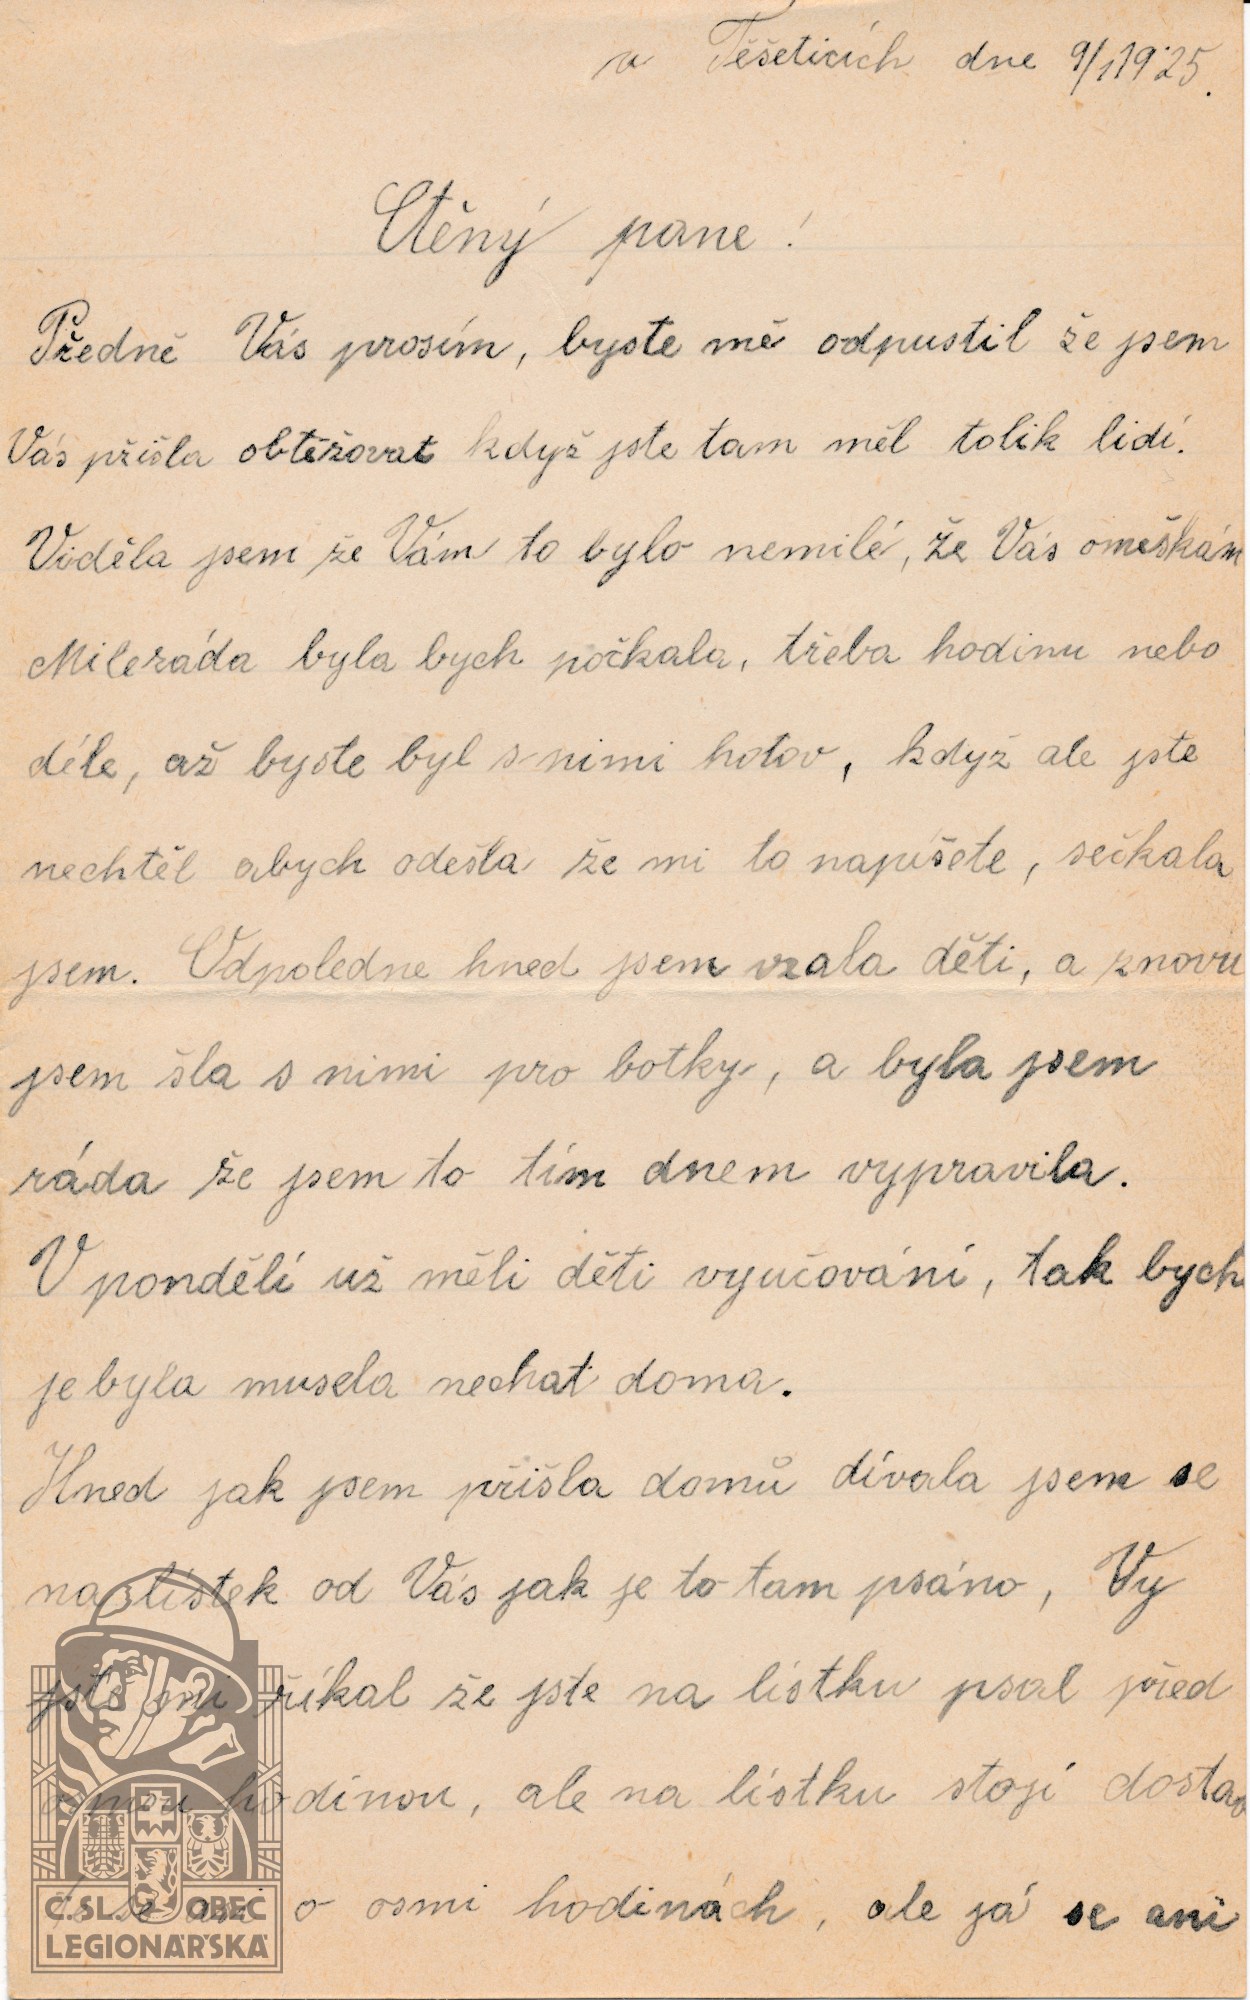 v Těšeticích dne 9/1 1925.
Ctěný pane!
Předně Vás prosím, byste mě odpustil že jsem
Vás přišla obtěžovat když jste tam měl tolik lidí.
Viděla jsem že Vám to bylo nemilé, že Vás omeškám
Mileráda byla bych počkala, třeba hodinu nebo
déle, až byste byl s nimi hotov, když ale jste
nechtěl abych odešla že mi to napíšete, sečkala
jsem. Odpoledne hned jsem vzala děti, a znovu
jsem šla s nimi pro botky, a byla jsem
ráda že jsem to tím dnem vypravila.
V pondělí už měli děti vyučování, tak bych
je byla musela nechat doma.
Hned jak jsem přišla domů dívala jsem se
na lístek od Vás jak je to tam psáno, Vy
jste mi říkal že jste na lístku psal před
osmou hodinou, ale na lístku stojí dostav
te se asi o osmi hodinách, ale já se ani
Č.SL. OBEC
LEGIONÁŘSKÁ